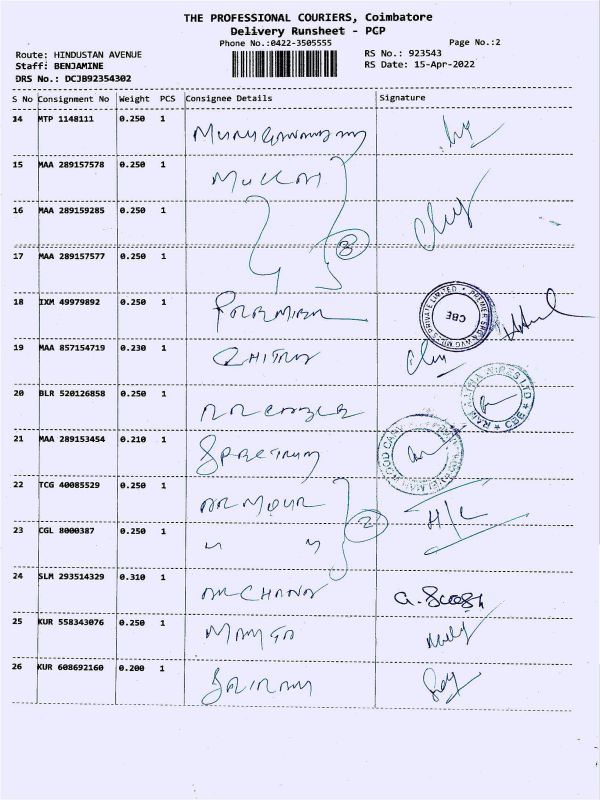 THE PROFESSIONAL COURIERS, Coimbatore
Delivery Runsheet - PCP
Phone No.:0422-3505555
Page No.:2
Route: HINDUSTAN AVENUE
RS No.: 923543
Staff: BENJAMINE
RS Date: 15-Apr-2022
DRS No.: DCJB92354302
S No Consignment No Weight PCS Consignee Details Signature
14 MTP 1148111 0.250 1
15 MAA 289157578 0.250 1
16 MAA 289159285 0.250 1
17 MAA 289157577 0.250 1
3
18 IXM 49979892 0.250 1
CBE
19 MAA 857154719 0.230 1 CHITRA
20 BLR 520126858 0.250 1
CBE
21 MAA 289153454 0.210 1 SPECTRUM
22 TCG 40085529 0.250 1 ARMOUR
2
23 CGL 8000387 0.250 1 " "
24 SLM 293514329 0.310 1 ARCHANA
25 KUR 558343076 0.250 1 MAMTA
26 KUR 608692160 0.200 1 SRIRAM